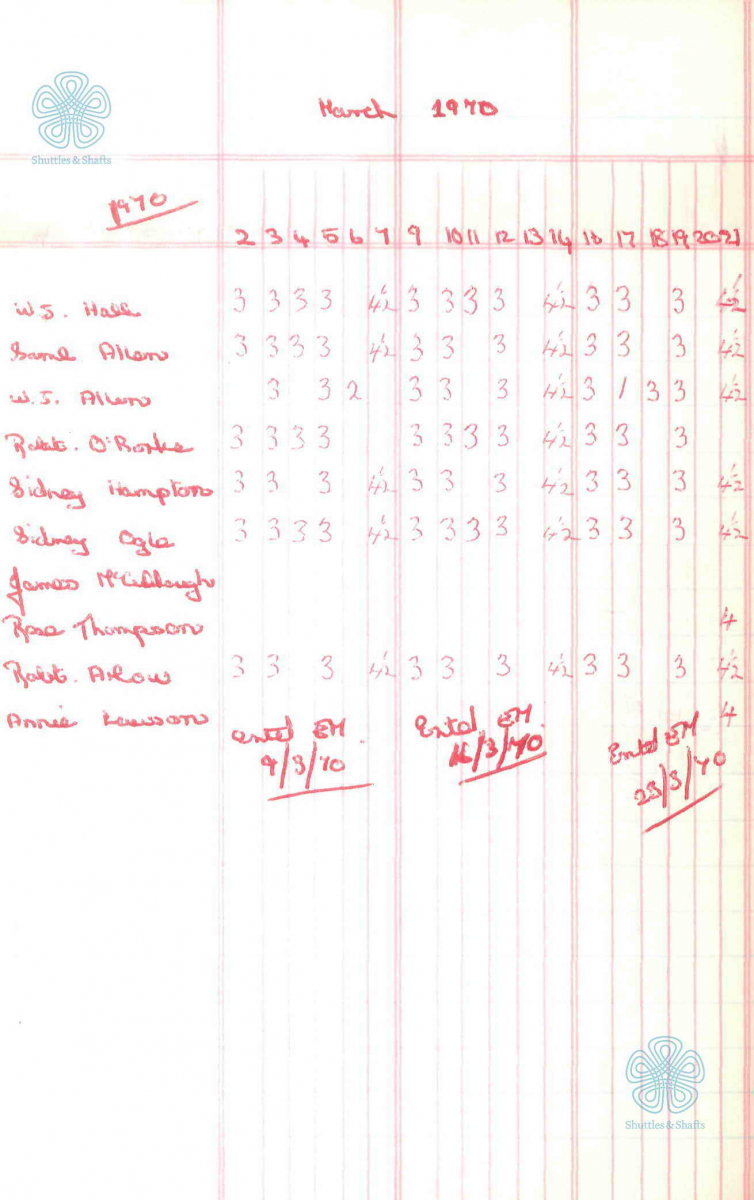 March 1970
Shuttles & Shafts
1970
2 3 4 5 6 7 9 10 11 12 13 14 16 17 18 19 20 21
W.J. Hall 3 3 3 3 4½ 3 3 3 3 4½ 3 3 3 4½
Saml Allen 3 3 3 3 4½ 3 3 3 4½ 3 3 3 4½
W.J. Allen 3 3 2 3 3 3 4½ 3 1 3 3 4½
Robt. O'Rorke 3 3 3 3 3 3 3 3 4½ 3 3 3
Sidney Hampton 3 3 3 4½ 3 3 3 4½ 3 3 3 4½
Sidney Ogle 3 3 3 3 4½ 3 3 3 3 4½ 3 3 3 4½
James McCullough
Rose Thompson 4
Robt. Arlow 3 3 3 4½ 3 3 3 4½ 3 3 3 4½
Annie Lawson 4
Entd EM Entd EM Entd EM
9/3/70 16/3/70 23/3/70
Shuttles & Shafts